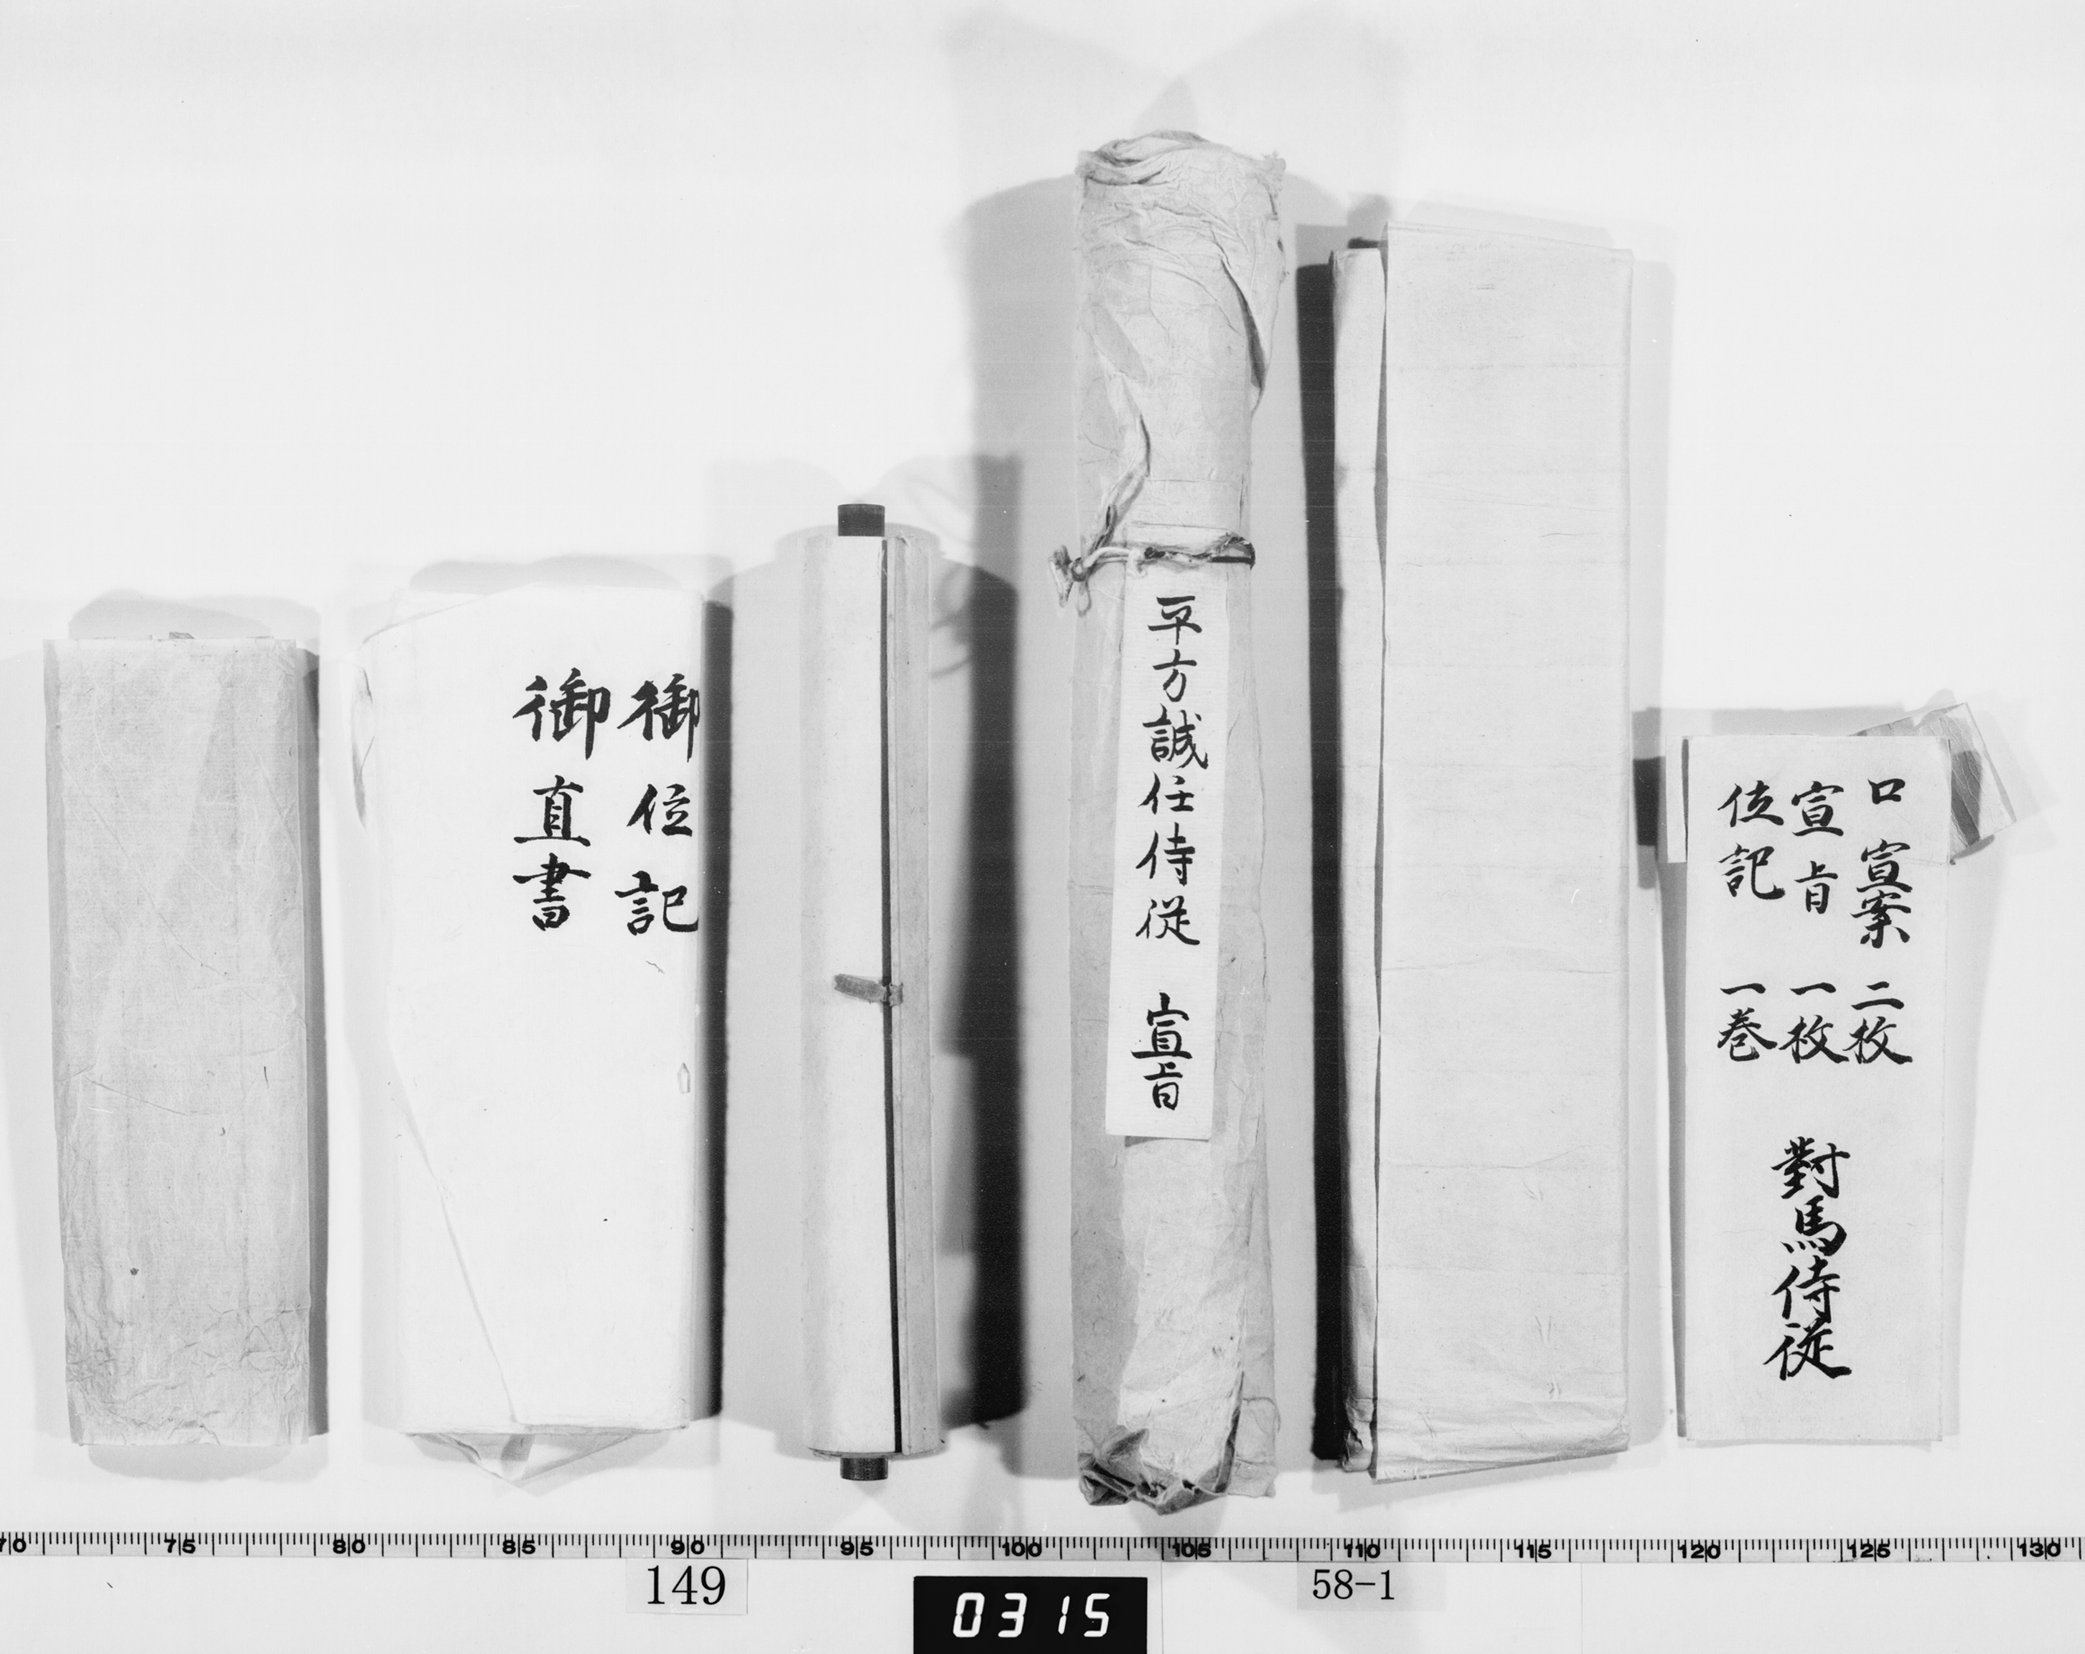 口宣案 二枚
宣旨 一枚
位記 一巻
對馬侍従
平方誠任侍従 宣旨
御位記
御直書
70 75 80 85 90 95 100 105 110 115 120 125 130
149
0315
58-1